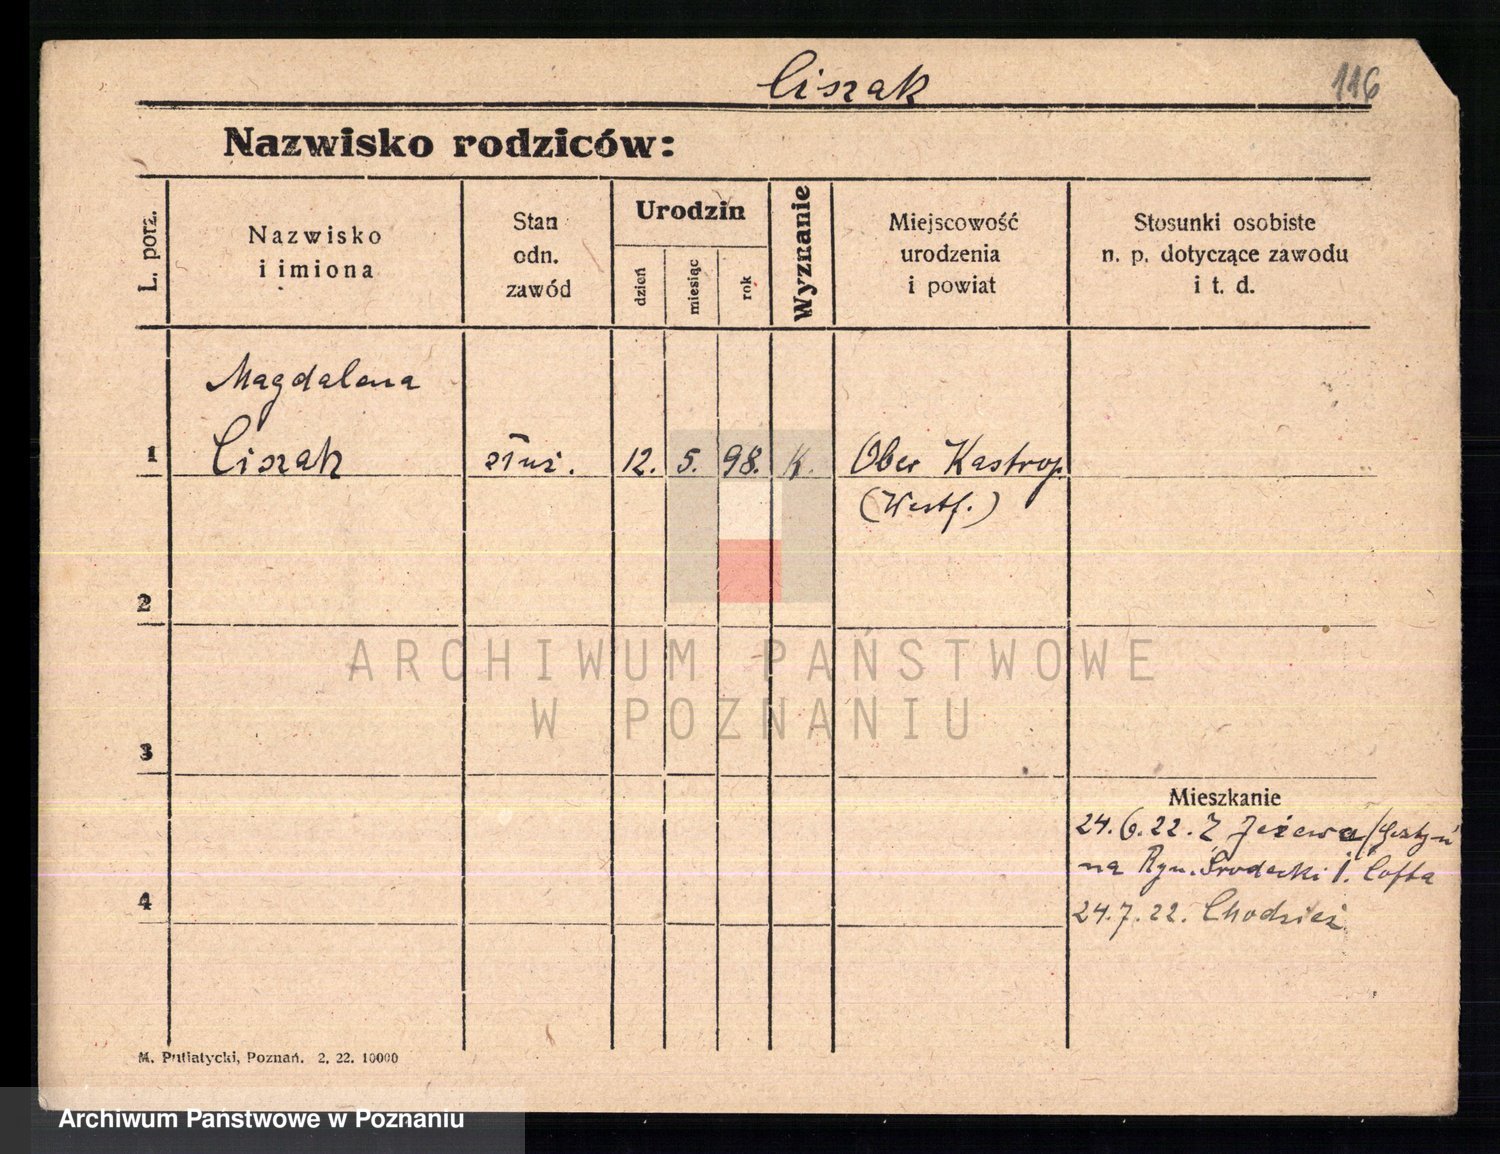 Ciszak
116
Nazwisko rodziców:
L. porz.
Nazwisko
i imiona
Stan
odn.
zawód
Urodzin
dzień
miesiąc
rok
Wyznanie
Miejscowość
urodzenia
i powiat
Stosunki osobiste
n. p. dotyczące zawodu
i t. d.
Magdalena
1 Ciszak służ. 12. 5. 98. K. Ober Kastrop
(Westf.)
2
ARCHIWUM PAŃSTWOWE
W POZNANIU
3
Mieszkanie
24.6.22. Z Jeżewa/Gostyń
na Ryn. Środecki 1. Cofta
4
24.7.22. Chodzież
M. Putiatycki, Poznań. 2. 22. 10000
Archiwum Państwowe w Poznaniu